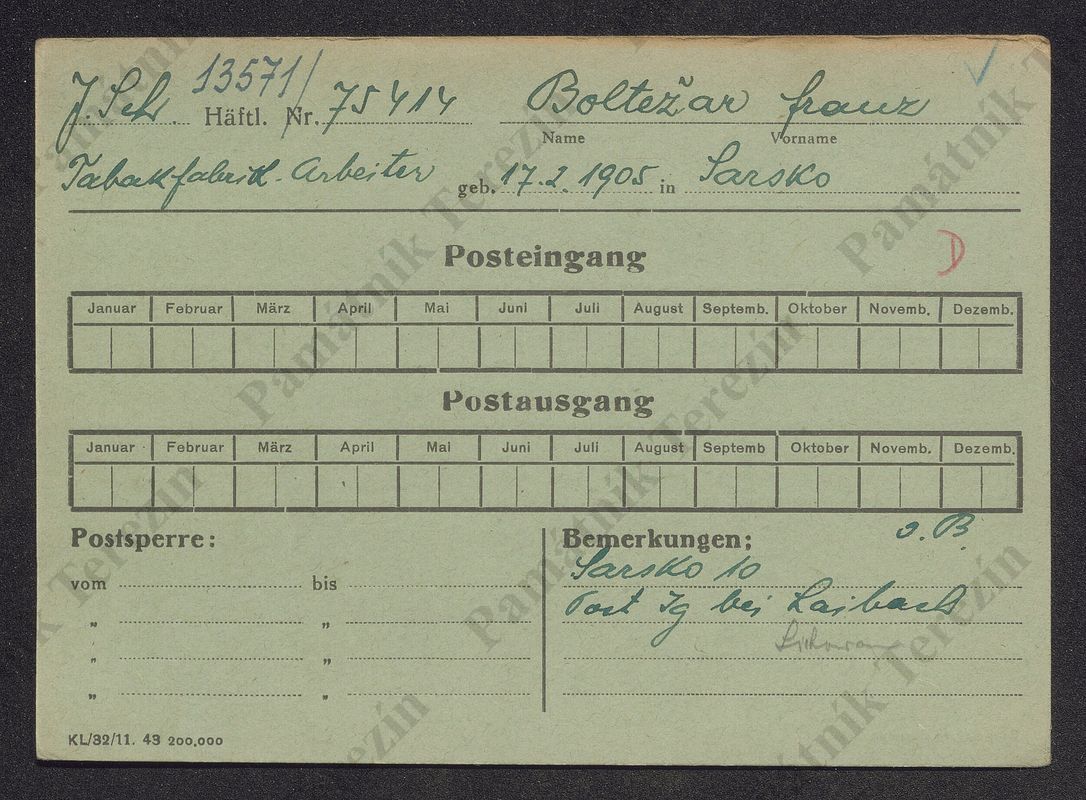 J. Sch. 13571/ Häftl. Nr. 75414 Boltežar franz
Name Vorname
Tabakfabrik-Arbeiter geb. 17.2.1905 in Sarsko
Posteingang D
Januar Februar März April Mai Juni Juli August Septemb. Oktober Novemb. Dezemb.
Postausgang
Januar Februar März April Mai Juni Juli August Septemb Oktober Novemb. Dezemb.
Postsperre:
vom bis
„ „
„ „
„ „
Bemerkungen: o. B.
Sarsko 10
Post Ig bei Laibach
KL/32/11. 43 200,000
Památník Terezín